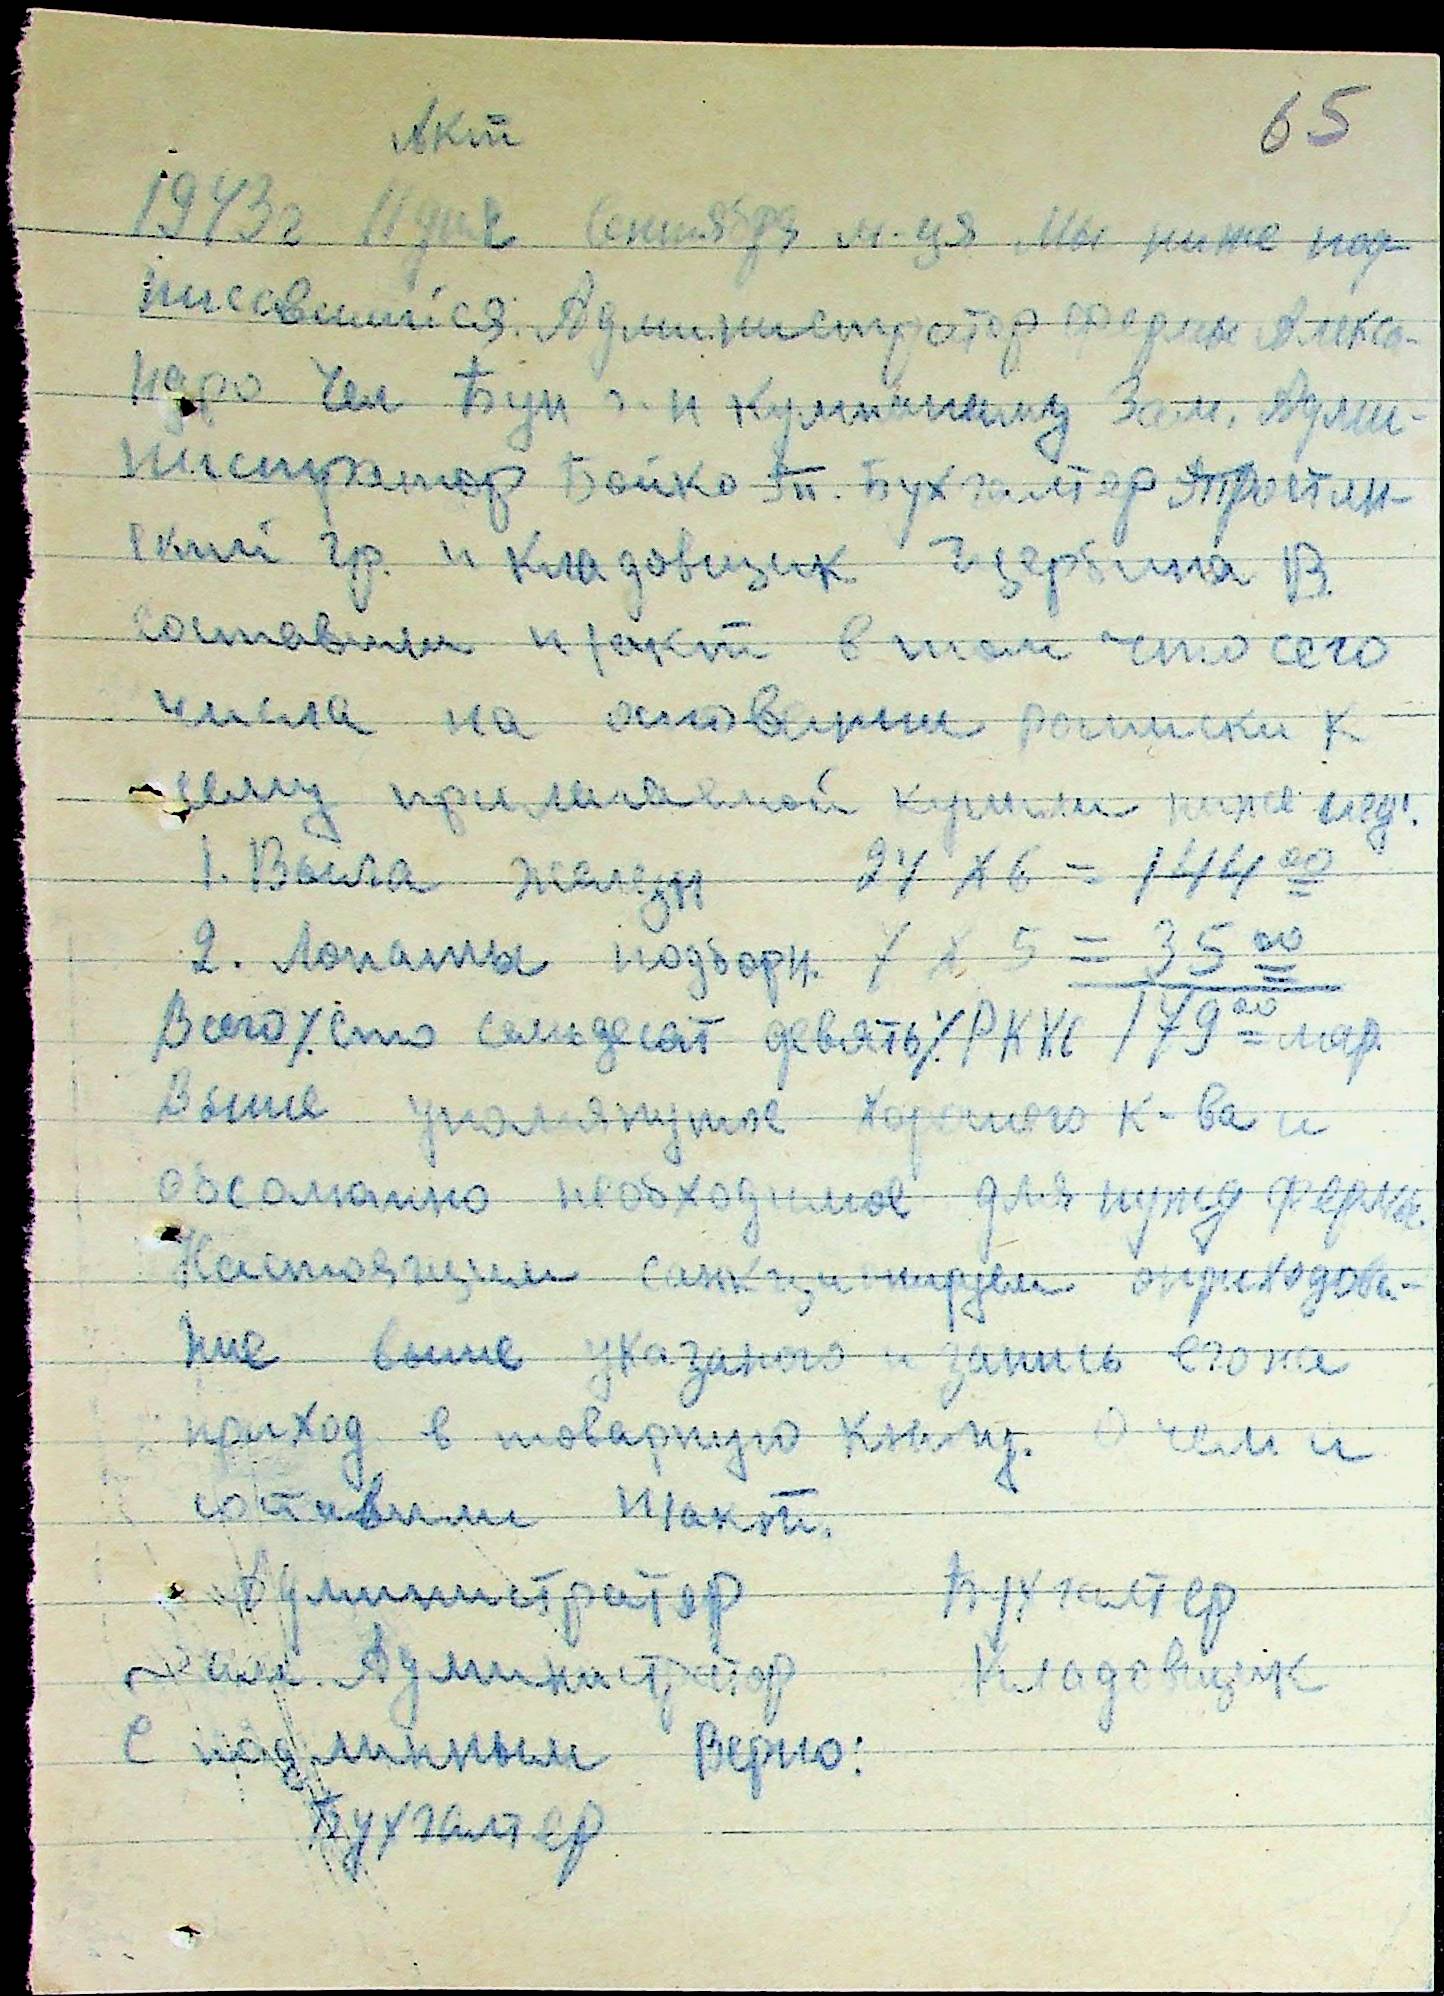 65
Акт
1943г 11 дня Сентября м-ця Мы ниже под-
писавшийся. Администратор фермы Алекса-
ндро Чел Бун
Зам. Адми-
нистратор Бойко Бухгалтер
ский Гр. и кладовщик Щербина В.
составили н/акт в том что сего
числа на основании росписки к
сему прилагаемой купили ниже след.
1. Вила железн 24 х 6 = 144 00
2. Лопаты подборн. 7 х 5 = 35 00
Всего /.Сто семьдесат девять/. РККС 179 00 мар.
Выше упомянутое хорошего к-ва и
обсолютно необходимое для нужд фермы.
Настоящим санкционируем оприходова-
ние выше указаного и запись его на
приход в товарную книгу. О чем и
составили н/акт.
Администратор Бухгалтер
Зам. Администратор Кладовщик
С подлинным Верно:
Бухгалтер